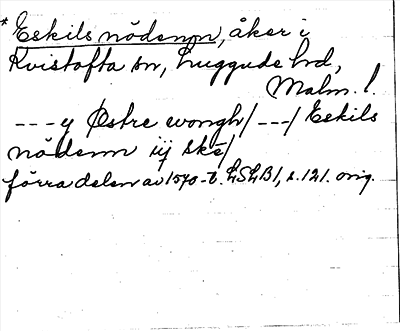 * Eskils nödenn, åker i
Kvistofta sn, Luggude hd,
Malm. l.
--- y Østre wongh/ ---/ Eskils
nödenn iij skē/
förra delen av 1570-t. LSLB1, s. 121. orig.